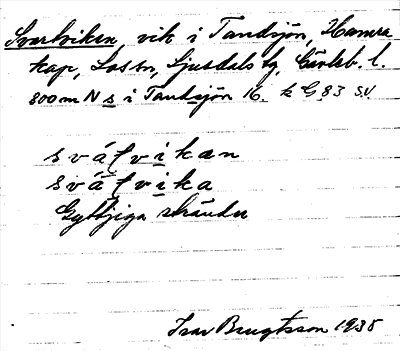 Svartviken, vik i Tandsjön, Hamra
kap, Los sn, Ljusdals tg, Gävleb. l.
800 m N s i Tandsjön 16. k G 83 S.V.
sváʃvikæn
sváʃvika
Gyttjiga stränder
Ivar Bengtsson 1935